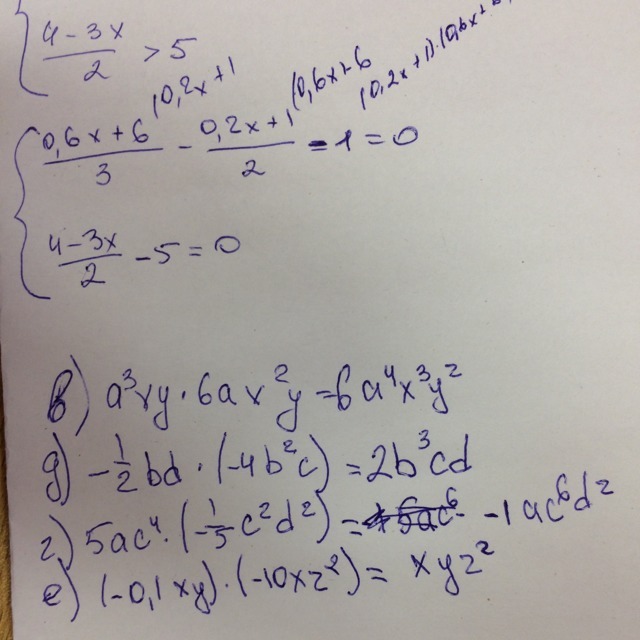 { (4-3x)/2 > 5
(0,2x+1 (0,6x+6 (0,2x+1).(0,6x+
{ (0,6x+6)/3 - (0,2x+1)/2 - 1 = 0
(4-3x)/2 - 5 = 0
в) a³xy · 6ax²y = 6a⁴x³y²
д) -1/2 bd · (-4b²c) = 2b³cd
г) 5ac⁴ · (-1/5 c²d²) = -1ac⁶d²
е) (-0,1xy) · (-10xz²) = xyz²